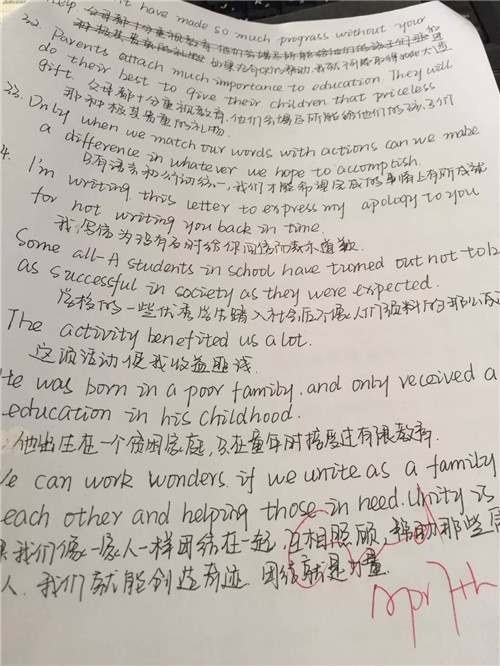 help. it have made so much prograss without your
22. Parents attach much importance to education. They will
do their best to give their children that priceless
gift. 父母都十分重视教育.他们会竭尽所能给他们的孩子们
那种极其贵重的礼物.
23. Only when we match our words with actions can we make
a difference in whatever we hope to accomplish.
只有语言和行动统一,我们才能希望完成的事情上有所成就
4. I'm writing this letter to express my apology to you
for not writing you back in time.
我写信为没有及时给你回信而表示道歉.
Some all-A students in school have turned out not to be
as successful in society as they were expected.
学校的一些优秀学生踏入社会后不像人们预料的那么成
The activity benefited us a lot.
这项活动使我收益匪浅.
He was born in a poor family. and only received a
education in his childhood.
他出生在一个贫困家庭,只在童年时接受过有限教育.
We can work wonders. if we unite as a family
each other and helping those in need. Unity is
我们像一家人一样团结在一起,互相照顾,帮助那些
人,我们就能创造奇迹. 团结就是力量
Apr 7th